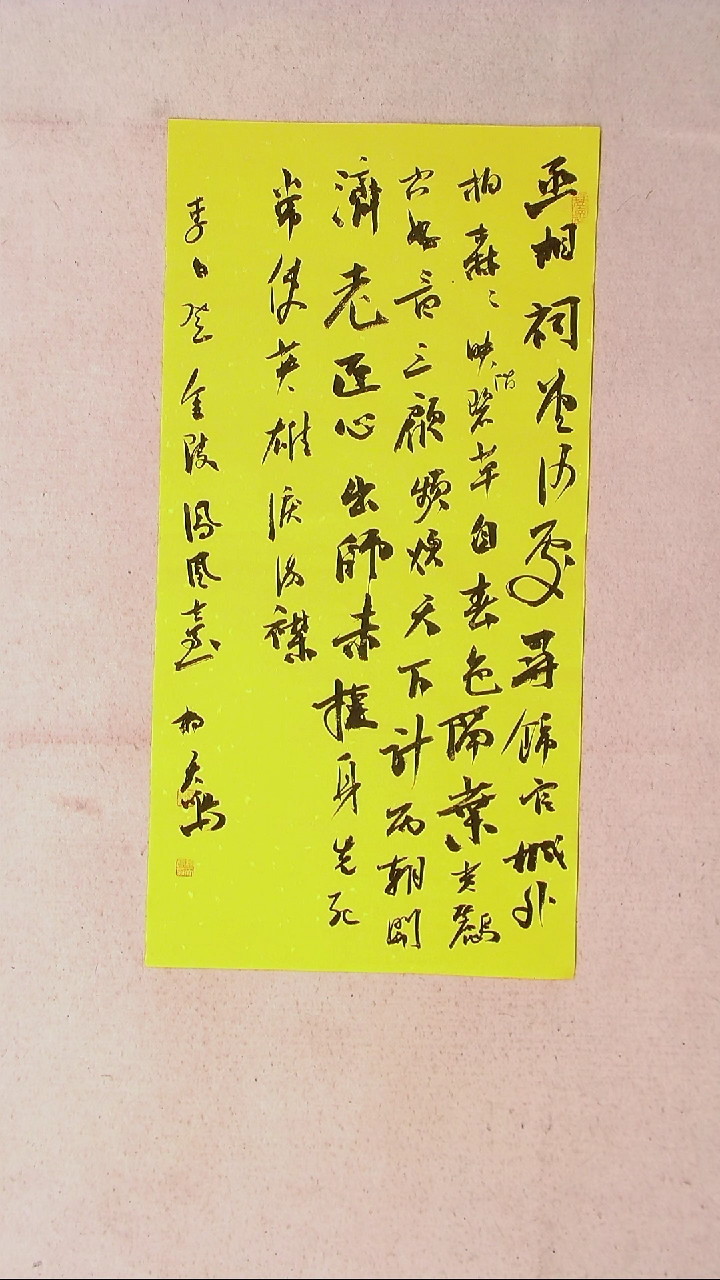 丞相祠堂何處尋錦官城外
柏森々映階碧草自春色隔葉黄鸝
空好音三顧頻煩天下計兩朝開
濟老臣心出師未捷身先死
常使英雄淚滿襟
李白登金陵鳳凰臺